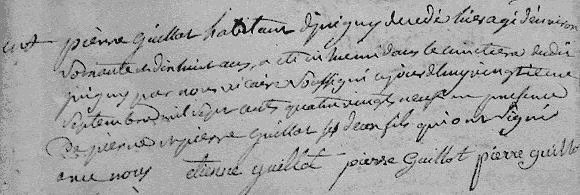 pierre Guillot habitant dépuigny decedé hier agé d'environ
soixante et dix huit ans, a eté inhumé dans le cimetiere dudit
puigny par nous vicaire soussigné ce jourdhuy vingt
septembre mil sept cents quatre vingt neuf en presence
De pierre et pierre Guillot ses deux fils qui ont signé
avec nous etienne guillot pierre Guillot pierre guillo